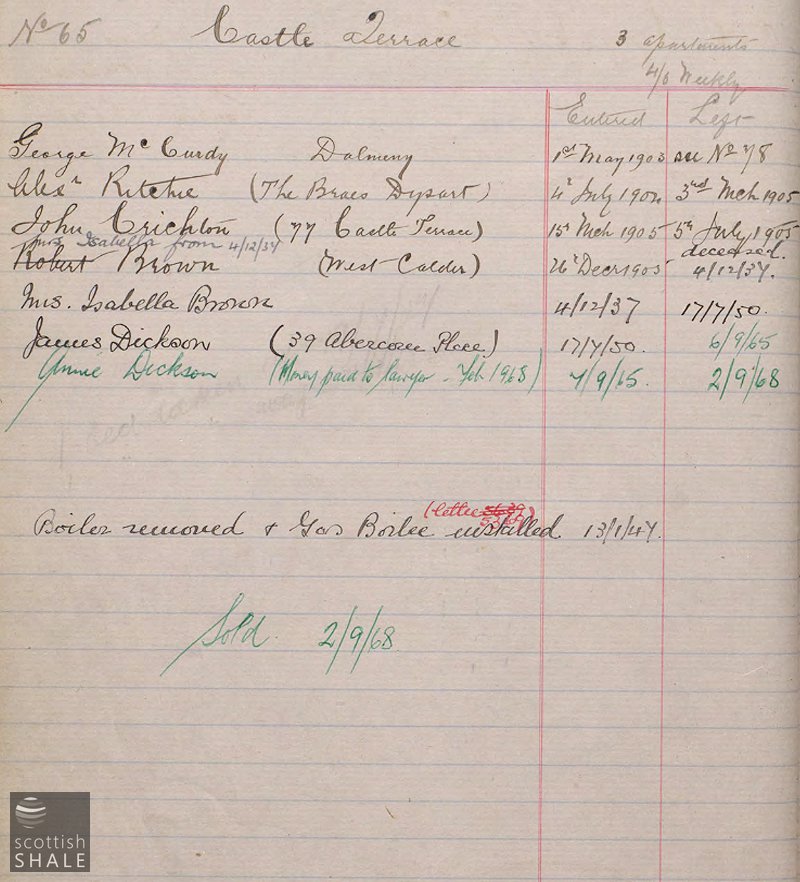 No 65 Castle Terrace 3 apartments
4/6 Weekly
Entered Left
George Mc Curdy Dalmeny 1st May 1903 see No 78
Alexr Ritchie (The Braes Dysart) 4th July 1904 3rd Mch 1905
John Crichton (77 Castle Terrace) 15th Mch 1905 5th July 1905
Mrs. Isabella from 4/12/37 deceased.
Robert Brown (West Calder) 26th Decr 1905 4/12/37.
Mrs. Isabella Brown 4/12/37 17/7/50.
James Dickson (39 Abercorn Place) 17/7/50. 6/9/65
Annie Dickson (Money paid to lawyer - Feb 1968) 7/9/65. 2/9/68
(letter 5369)
Boiler removed & Gas Boiler installed 13/1/47.
Sold. 2/9/68
scottish
SHALE